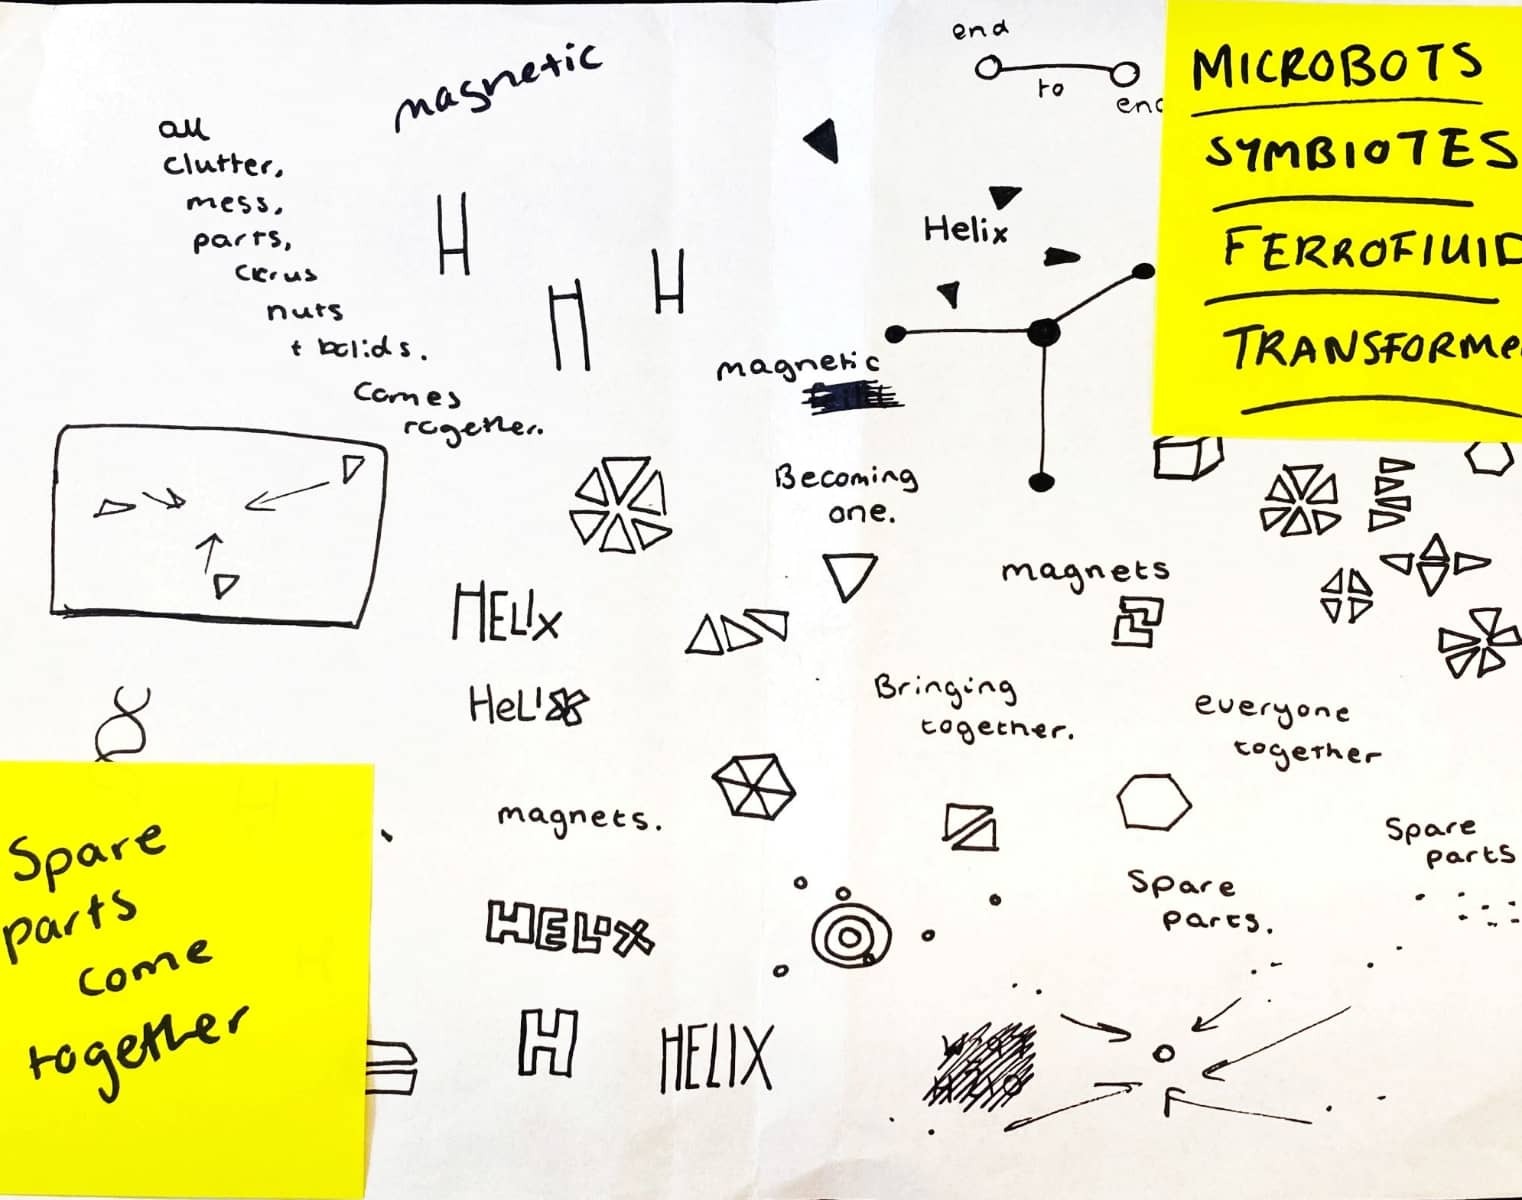 magnetic
all
clutter,
mess,
parts,
nuts
+ bolids.
comes
together.
H
H
H
end
to
end
Helix
magnetic
MICROBOTS
SYMBIOTES
FERROFlUID
TRANSFORMe
Becoming
one.
magnets
HELIx
HeLix
Bringing
together.
everyone
together
magnets.
HELIX
Spare
parts.
Spare
parts
H
HELIX
Spare
parts
come
together